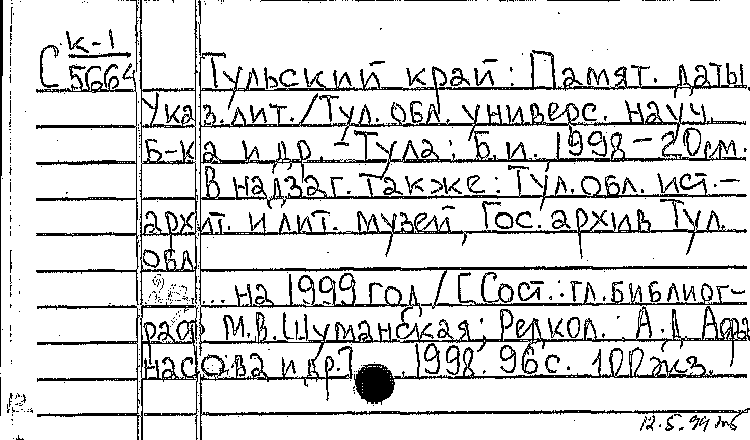 К-1
С 5664 Тульский край: Памят. даты.
Указ. лит. / Тул. обл. универс. науч.
б-ка и др. - Тула: Б. и. 1998 - 20см.
В надзаг. также: Тул. обл. ист.-
архит. и лит. музей, Гос. архив Тул.
обл.
... на 1999 год / [Сост.: гл. библиог-
раф М.В. Шуманская; Редкол.: А.Д. Афа
насова и др.] . 1998. 96с. 100экз.
12.
12.5.99